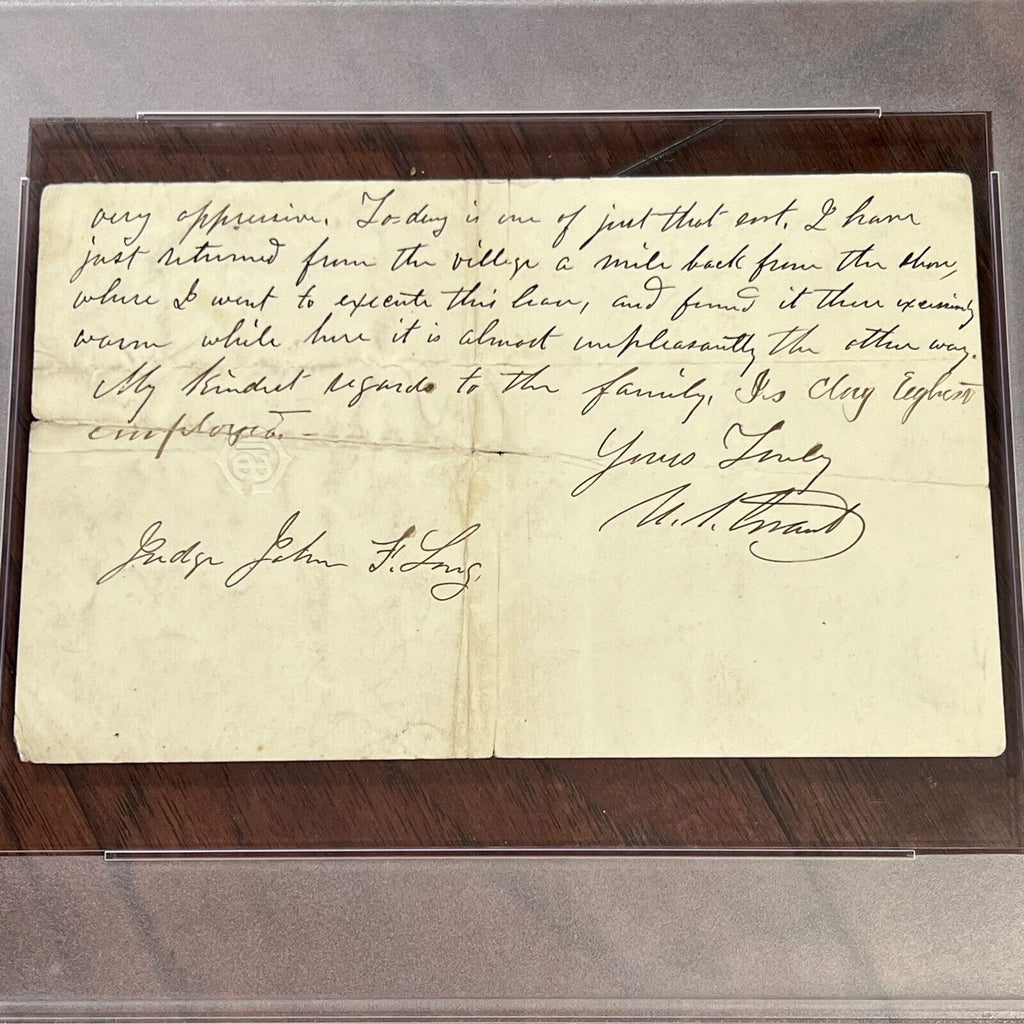 very oppressive. To-day is one of just that sort. I have
just returned from the village a mile back from the shore,
where I went to execute this lease, and found it there excessively
warm while here it is almost unpleasantly the other way.
My kindest regards to the family. Is Clay
employed. -
Yours Truly
U. S. Grant
Judge John F. Long.